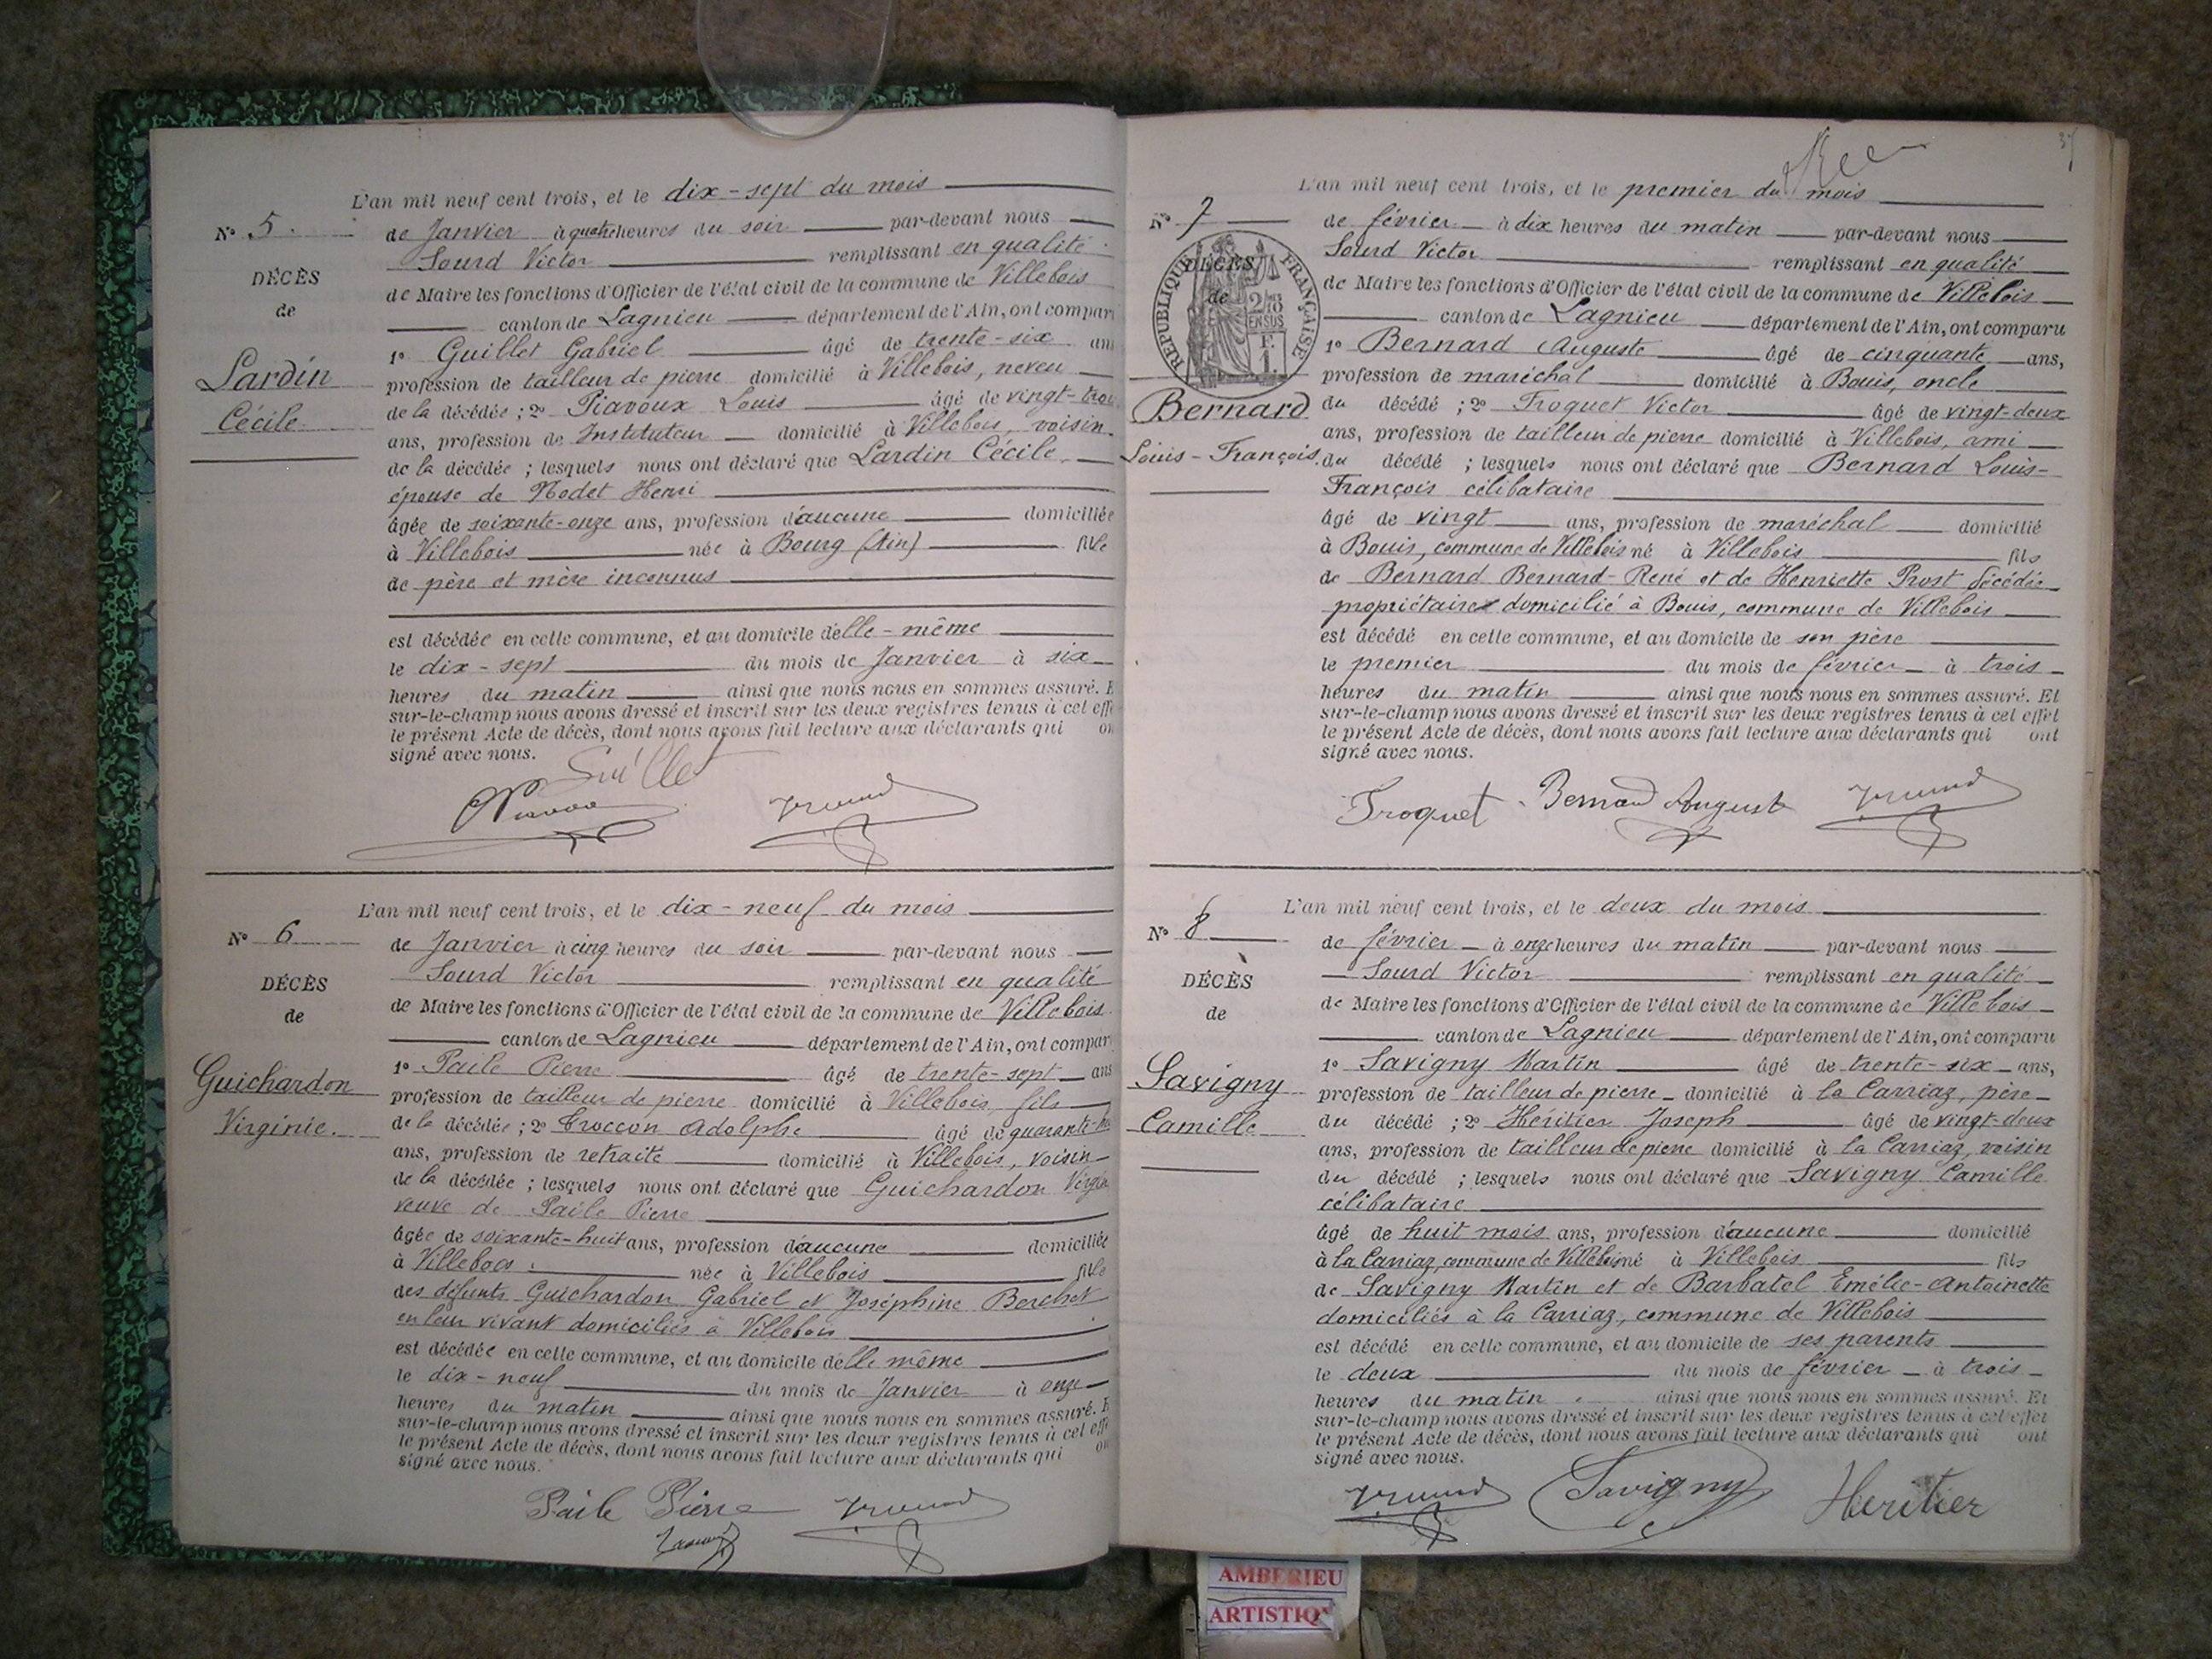 L'an mil neuf cent trois, et le dix-sept du mois
N° 5
de Janvier à quatre heures du soir par-devant nous
Sourd Victor remplissant en qualité
DÉCÈS
de Maire les fonctions d'Officier de l'état civil de la commune de Villebois
de
canton de Lagnieu département de l'Ain, ont compar
1° Guillet Gabriel âgé de trente-six an
Lardin
profession de tailleur de pierre domicilié à Villebois, neveu
de la décédée ; 2° Piavoux Louis âgé de vingt-troi
Cécile
ans, profession de Instituteur domicilié à Villebois, voisin
de la décédée ; lesquels nous ont déclaré que Lardin Cécile
épouse de Nodet Henri
âgée de soixante-onze ans, profession d'aucune domiciliée
à Villebois née à Bourg (Ain) fille
de père et mère inconnus
est décédée en cette commune, et au domicile d'elle-même
le dix-sept du mois de Janvier à six
heures du matin ainsi que nous nous en sommes assuré. E
sur-le-champ nous avons dressé et inscrit sur les deux registres tenus à cet effe
le présent Acte de décès, dont nous avons fait lecture aux déclarants qui on
signé avec nous.
Guillet
L'an mil neuf cent trois, et le dix-neuf du mois
N° 6
de Janvier à cinq heures du soir par-devant nous
Sourd Victor remplissant en qualité
DÉCÈS
de Maire les fonctions d'Officier de l'état civil de la commune de Villebois
de
canton de Lagnieu département de l'Ain, ont compar
1° Paile Pierre âgé de trente-sept ans
Guichardon
profession de tailleur de pierre domicilié à Villebois, fils
de la décédée ; 2° Troccon Adolphe âgé de quarante-
Virginie
ans, profession de retraité domicilié à Villebois, voisin
de la décédée ; lesquels nous ont déclaré que Guichardon Virgin
veuve de Paile Pierre
âgée de soixante-huit ans, profession d'aucune domiciliée
à Villebois née à Villebois fille
des défunts Guichardon Gabriel et Joséphine Berchet
en leur vivant domiciliés à Villebois
est décédée en cette commune, et au domicile d'elle même
le dix-neuf du mois de Janvier à onze
heures du matin ainsi que nous nous en sommes assuré. E
sur-le-champ nous avons dressé et inscrit sur les deux registres tenus à cet effe
le présent Acte de décès, dont nous avons fait lecture aux déclarants qui on
signé avec nous.
Paile Pierre
37
L'an mil neuf cent trois, et le premier du mois
N° 7
de février à dix heures du matin par-devant nous
Sourd Victor remplissant en qualité
DÉCÈS
de
RÉPUBLIQUE FRANÇAISE
de Maire les fonctions d'Officier de l'état civil de la commune de Villebois
canton de Lagnieu département de l'Ain, ont comparu
1° Bernard Auguste âgé de cinquante ans,
profession de maréchal domicilié à Bouis, oncle
Bernard
du décédé ; 2° Troquet Victor âgé de vingt-deux
ans, profession de tailleur de pierre domicilié à Villebois, ami
Louis-François
du décédé ; lesquels nous ont déclaré que Bernard Louis-
François célibataire
âgé de vingt ans, profession de maréchal domicilié
à Bouis, commune de Villebois né à Villebois fils
de Bernard Bernard-René et de Henriette Prost décédée
propriétaires domicilié à Bouis, commune de Villebois
est décédé en cette commune, et au domicile de son père
le premier du mois de février à trois
heures du matin ainsi que nous nous en sommes assuré. Et
sur-le-champ nous avons dressé et inscrit sur les deux registres tenus à cet effet
le présent Acte de décès, dont nous avons fait lecture aux déclarants qui ont
signé avec nous.
Troquet Bernard Auguste
L'an mil neuf cent trois, et le deux du mois
N° 8
de février à onze heures du matin par-devant nous
Sourd Victor remplissant en qualité
DÉCÈS
de Maire les fonctions d'Officier de l'état civil de la commune de Villebois
de
canton de Lagnieu département de l'Ain, ont comparu
1° Savigny Martin âgé de trente-six ans,
Savigny
profession de tailleur de pierre domicilié à la Carriaz, père
Camille
du décédé ; 2° Héritier Joseph âgé de vingt-deux
ans, profession de tailleur de pierre domicilié à la Carriaz, voisin
du décédé ; lesquels nous ont déclaré que Savigny Camille
célibataire
âgé de huit mois ans, profession d'aucune domicilié
à la Carriaz, commune de Villebois né à Villebois fils
de Savigny Martin et de Barbatel Emélie-Antoinette
domiciliés à la Carriaz, commune de Villebois
est décédé en cette commune, et au domicile de ses parents
le deux du mois de février à trois
heures du matin ainsi que nous nous en sommes assuré. Et
sur-le-champ nous avons dressé et inscrit sur les deux registres tenus à cet effet
le présent Acte de décès, dont nous avons fait lecture aux déclarants qui ont
signé avec nous.
Savigny Heritier
AMBERIEU
ARTISTIQ